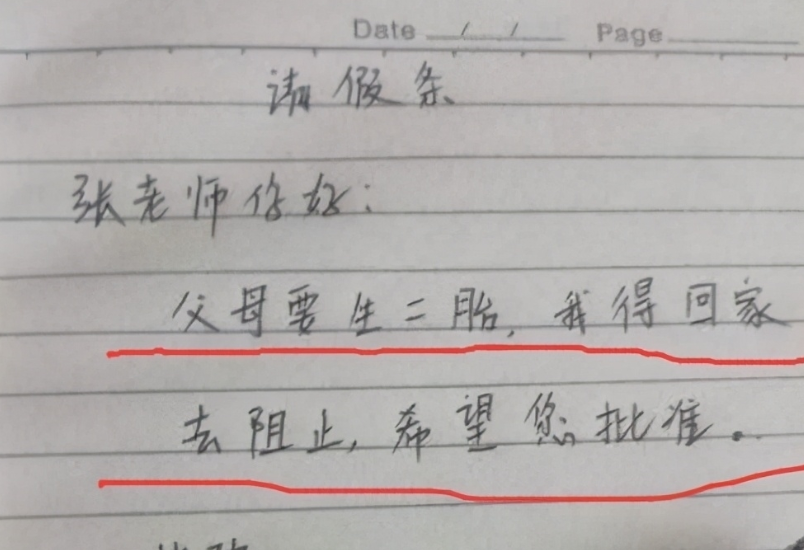 Date / / Page
请假条
张老师你好:
父母要生二胎,我得回家
去阻止,希望您批准。